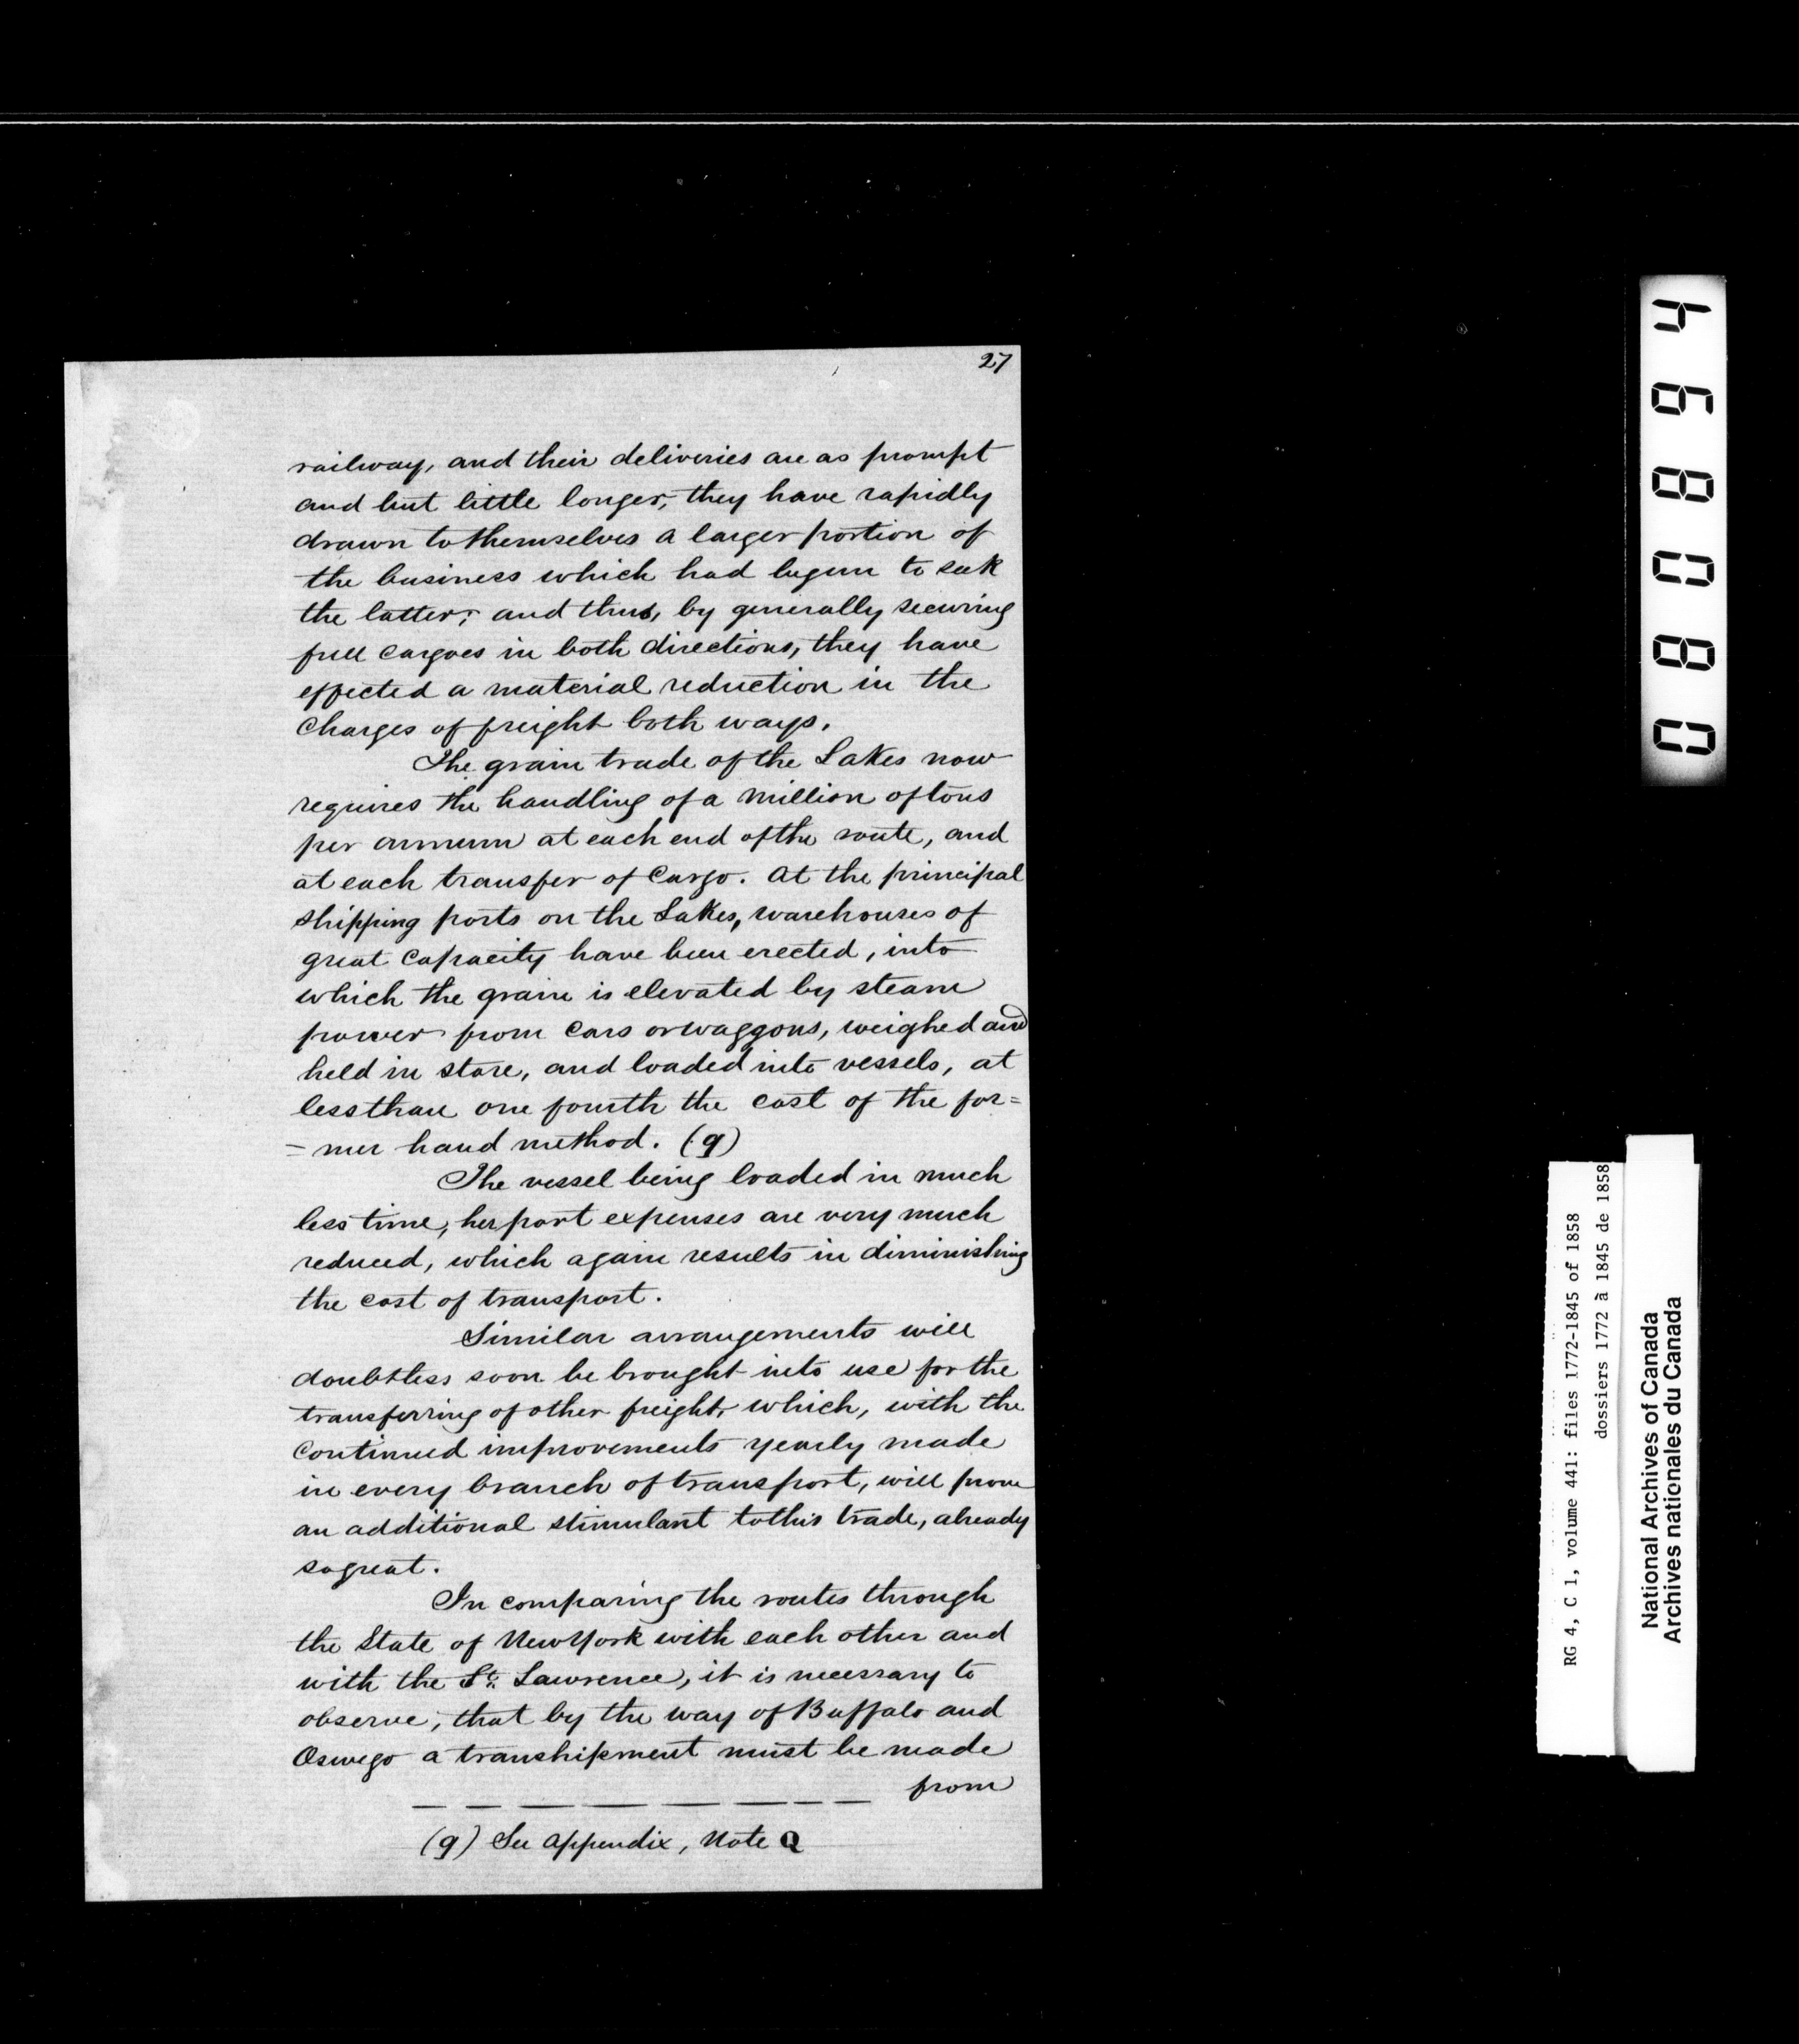 27
railway, and their deliveries are as prompt
and but little longer, they have rapidly
drawn to themselves a larger portion of
the business which had begun to seek
the latter; and thus, by generally securing
full cargoes in both directions, they have
effected a material reduction in the
charges of freight both ways.
The grain trade of the Lakes now
requires the handling of a million of tons
per annum at each end of the route, and
at each transfer of Cargo. At the principal
shipping ports on the Lakes, warehouses of
great capacity have been erected, into
which the grain is elevated by steam
power from cars or waggons, weighed and
held in store, and loaded into vessels, at
less than one fourth the cost of the for=
=mer hand method. (q)
The vessel being loaded in much
less time, her port expenses are very much
reduced, which again results in diminishing
the cost of transport.
Similar arrangements will
doubtless soon be brought into use for the
transferring of other freight, which, with the
continued improvements yearly made
in every branch of transport, will prove
an additional stimulant to this trade, already
so great.
In comparing the routes through
the State of New York with each other and
with the St. Lawrence, it is necessary to
observe, that by the way of Buffalo and
Oswego a transhipment must be made
from
(q) See appendix, Note Q
008094
RG 4, C 1, volume 441: files 1772-1845 of 1858
dossiers 1772 à 1845 de 1858
National Archives of Canada
Archives nationales du Canada